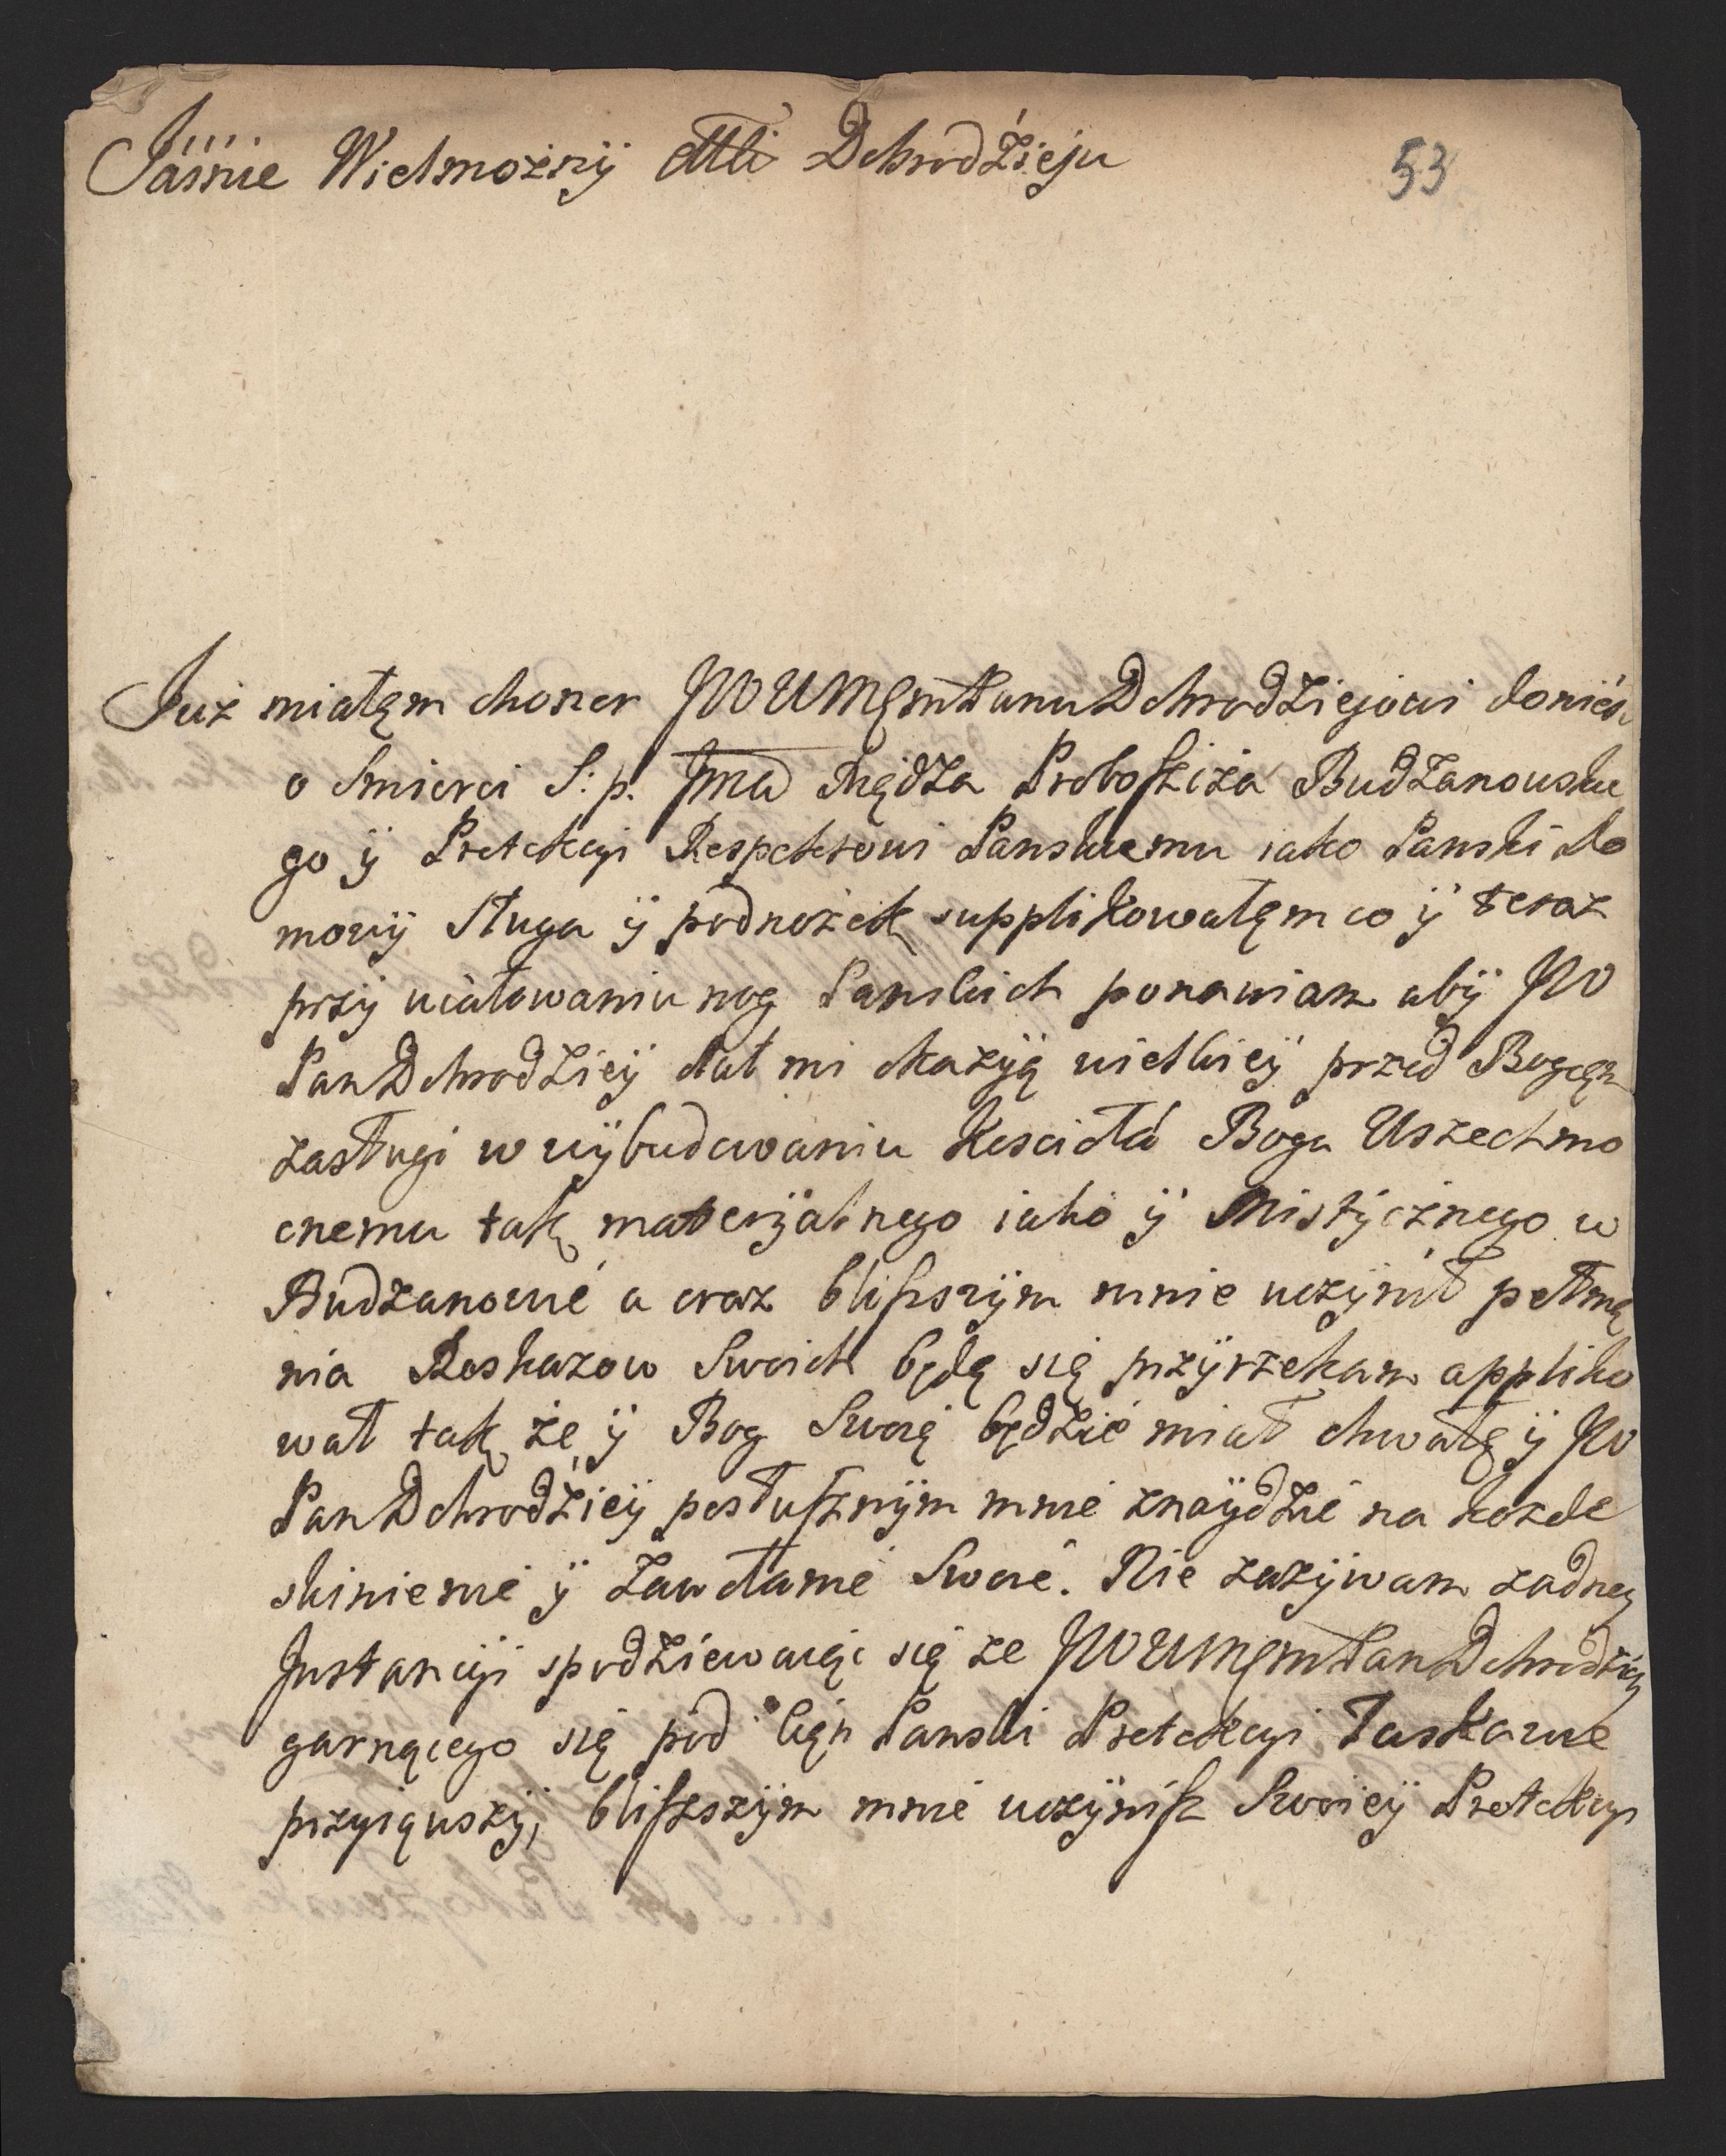 Jaśnie Wielmożnÿ Mci Dobrodźieju
53
Już miałęm honor JWWMęmPanu Dobrodźiejowi donieś
o Smierci S: p. Jmci Xiędza Proboszcza Budzanowskie
go ÿ Protekcyi Respektowi Panskiemu iako Panski do
mowÿ Sługa ÿ podnożek supplikowałęm co ÿ teraz
przÿ ucałowaniu nog Panskich ponawiam abÿ JW
Pan Dobrodźieÿ dał mi okazÿą wielkieÿ przed Bogięm
zasługi w wÿbudowaniu Koscioła Bogu Wszechmo
cnemu tak materÿalnego iako ÿ Mistÿcznego w
Budzanowie a oraz bliszszÿm mnie uczÿnił pełnię
nia Roskazow Swoich będę się przÿrzekam appliko
wał tak że ÿ Bog Swoię będzie miał chwałę ÿ JW
Pan Dobrodźieÿ posłusznÿm mnie znaÿdzie na kożde
skinienie ÿ zawołanie Swoie. Nie zazÿwam żadneÿ
Instancÿi spodźiewaiąc się że JWWMęmPan Dobrodźieÿ
garnącego się pod Cięń Panski Protekcyi łaskawie
przyiąwszÿ, bliszszÿm mnie uczÿnisz Swoieÿ Protekcyi